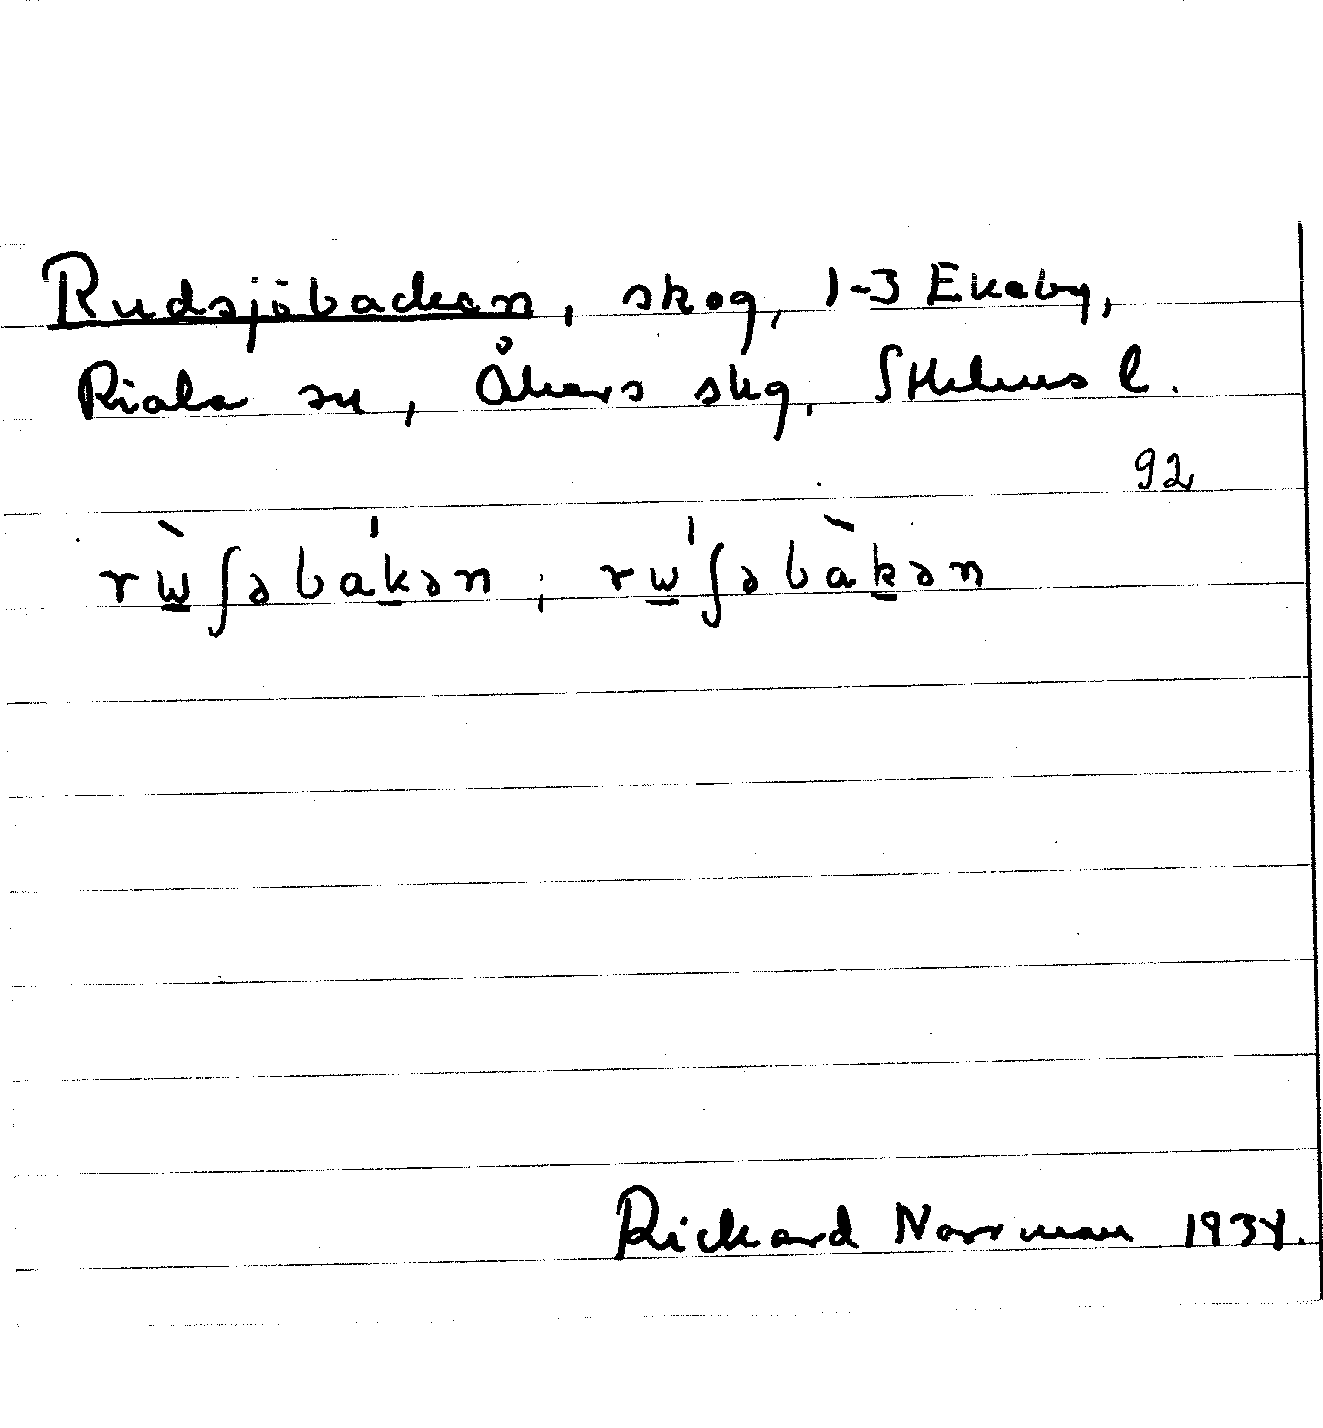 Rudsjöbacken, skog, 1-3 Ekeby,
Riala sn, Åkers skg, Sthlms l.
92
rẁʃəbákən; rẃʃəbàkən
Rickard Norrman 1934.